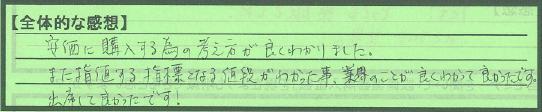 【全体的な感想】
安価に購入する為の考え方が良くわかりました。
また指値する指標となる値段がわかった事、業界のことが良くわかって良かったです。
出席して良かったです!